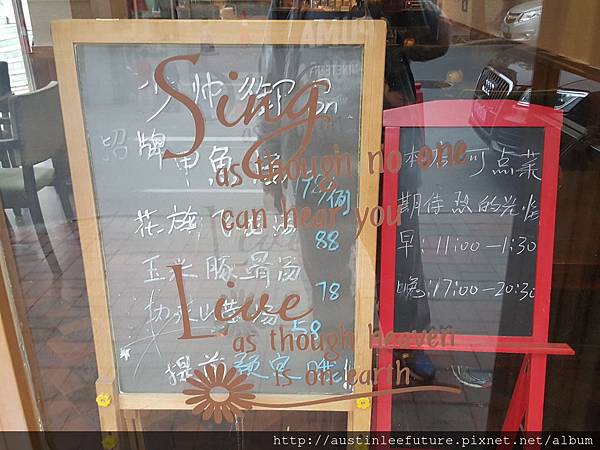 Sing
as though no one
can hear you
Live
as though heaven
is on earth
少帅
招牌甲魚
花旗
88
玉米豚骨湯
78
58
提前預定
可点菜
期待您的光临
早：11:00—1:30
晚：17:00—20:30
http://austinleefuture.pixnet.net/album